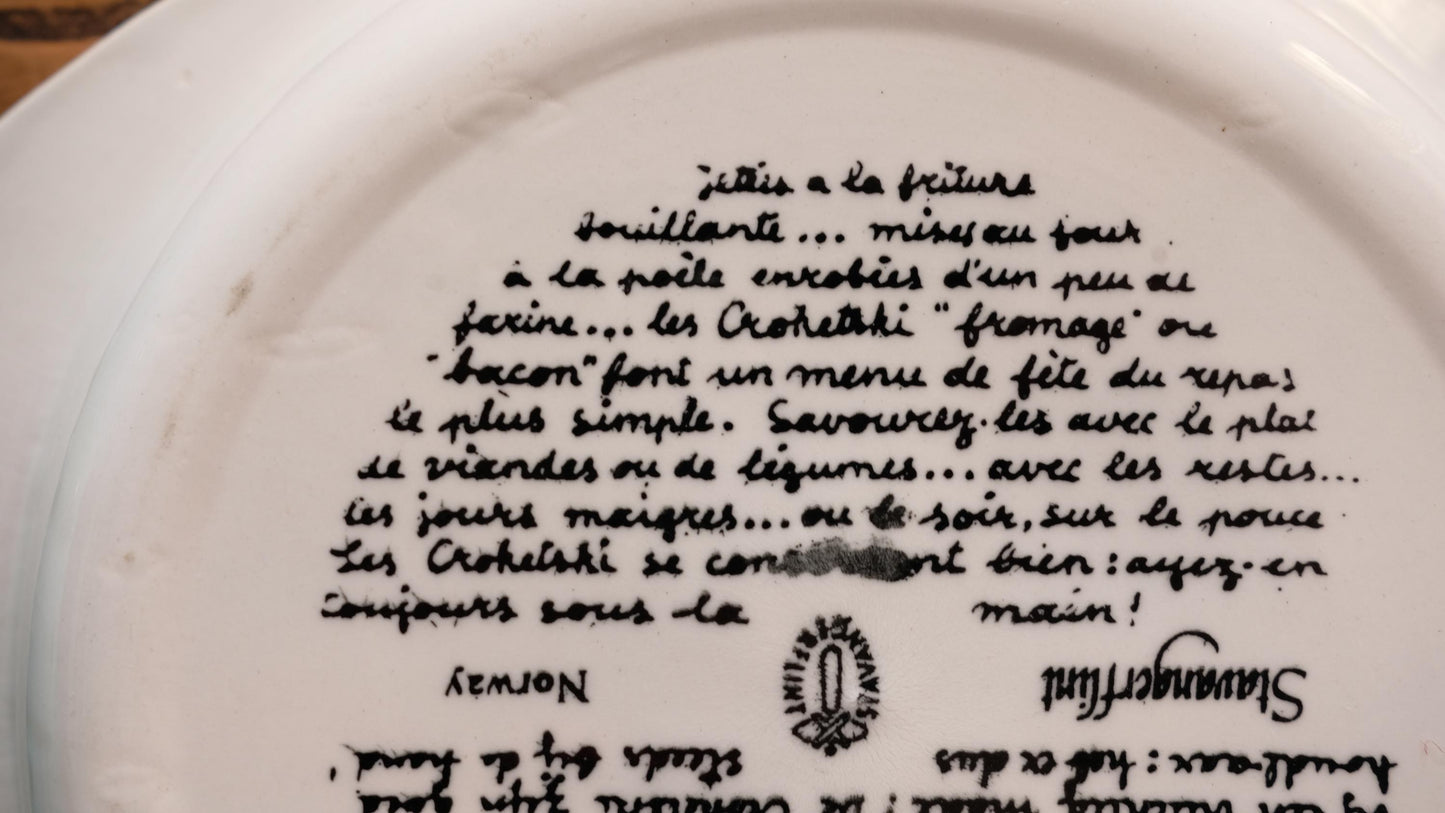 jettés a la friture
bouillante... mises au four
à la poêle enrobées d'un peu de
farine... les Croketski "fromage" ou
"bacon" font un menu de fête du repas
le plus simple. Savourez-les avec le plat
de viandes ou de légumes... avec les restes...
les jours maigres... ou le soir, sur le pouce
Les Croketski se con nt bien: ayez-en
toujours sous la main!
Norway STAVANGERFLINT Stavangerflint
houdt aan: heb er dus steeds bij de hand